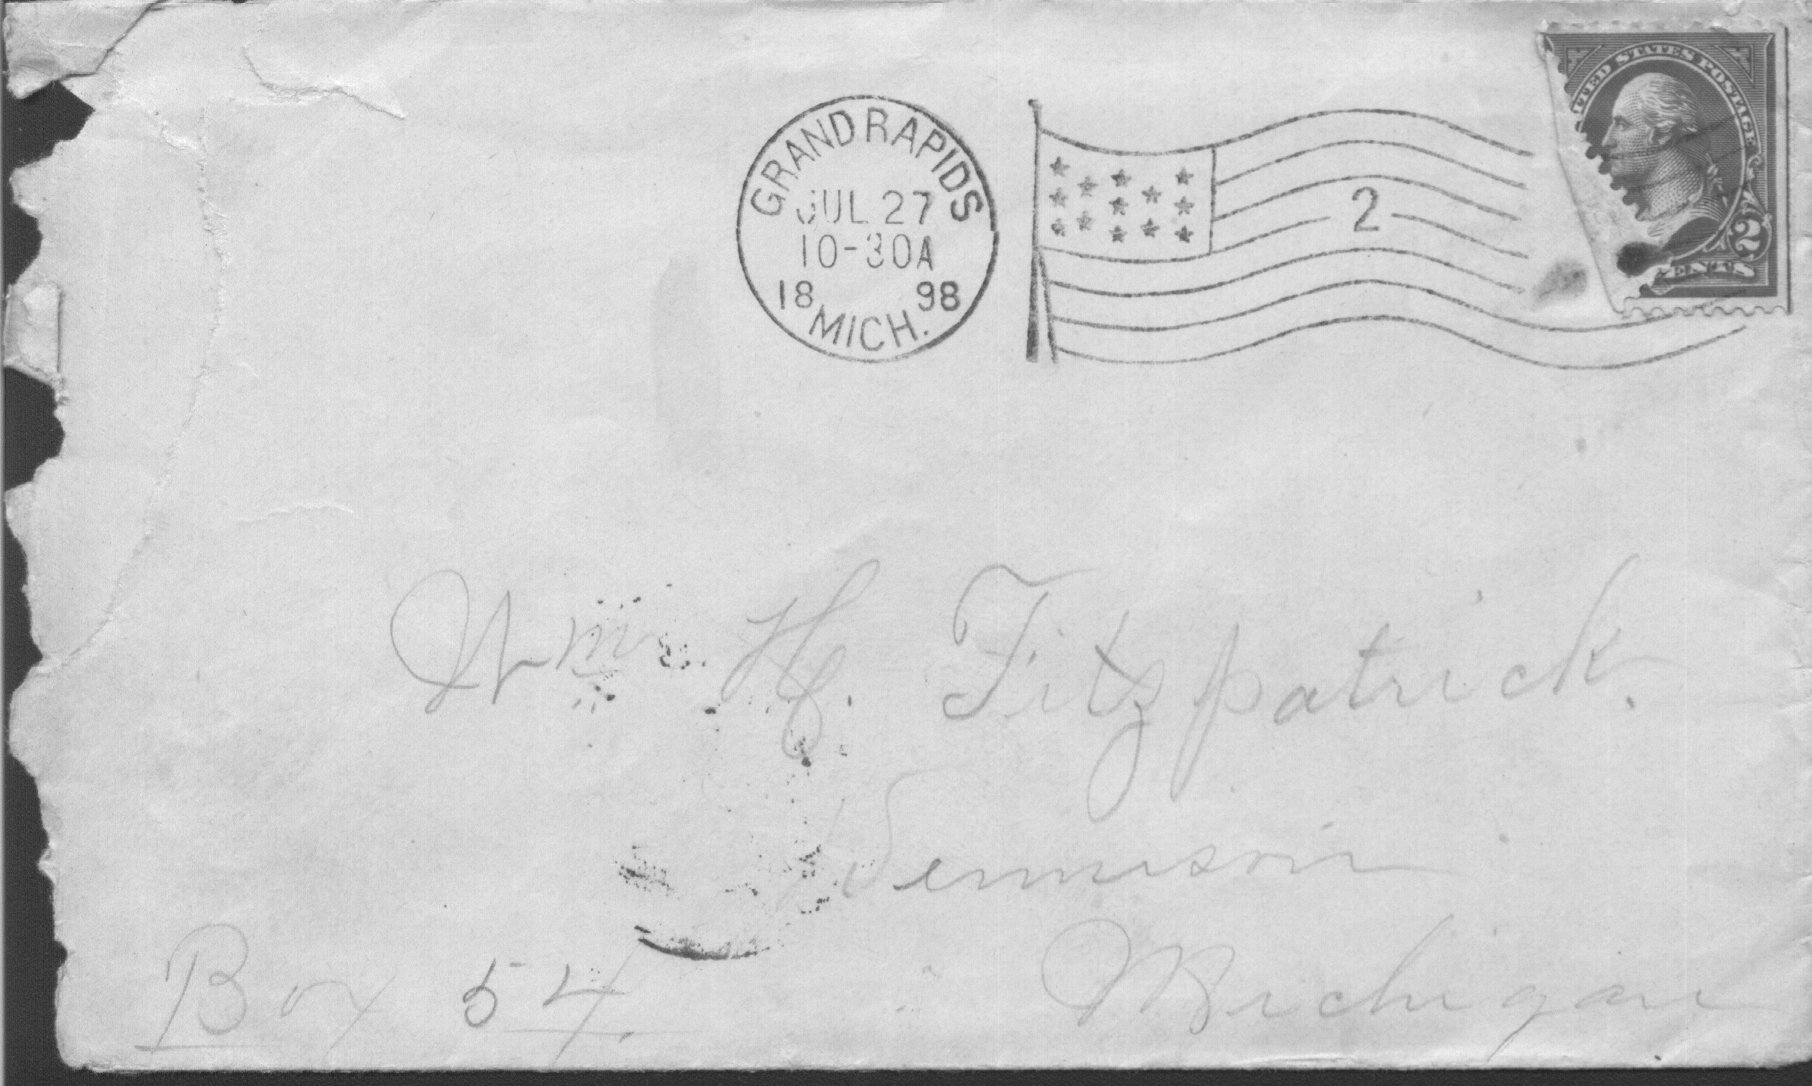 GRAND RAPIDS
JUL 27
10-30A
18 98
MICH.
2
UNITED STATES POSTAGE
2
CENTS
Wm. H. Fitzpatrick.
Dennison
Michigan
Box 54.